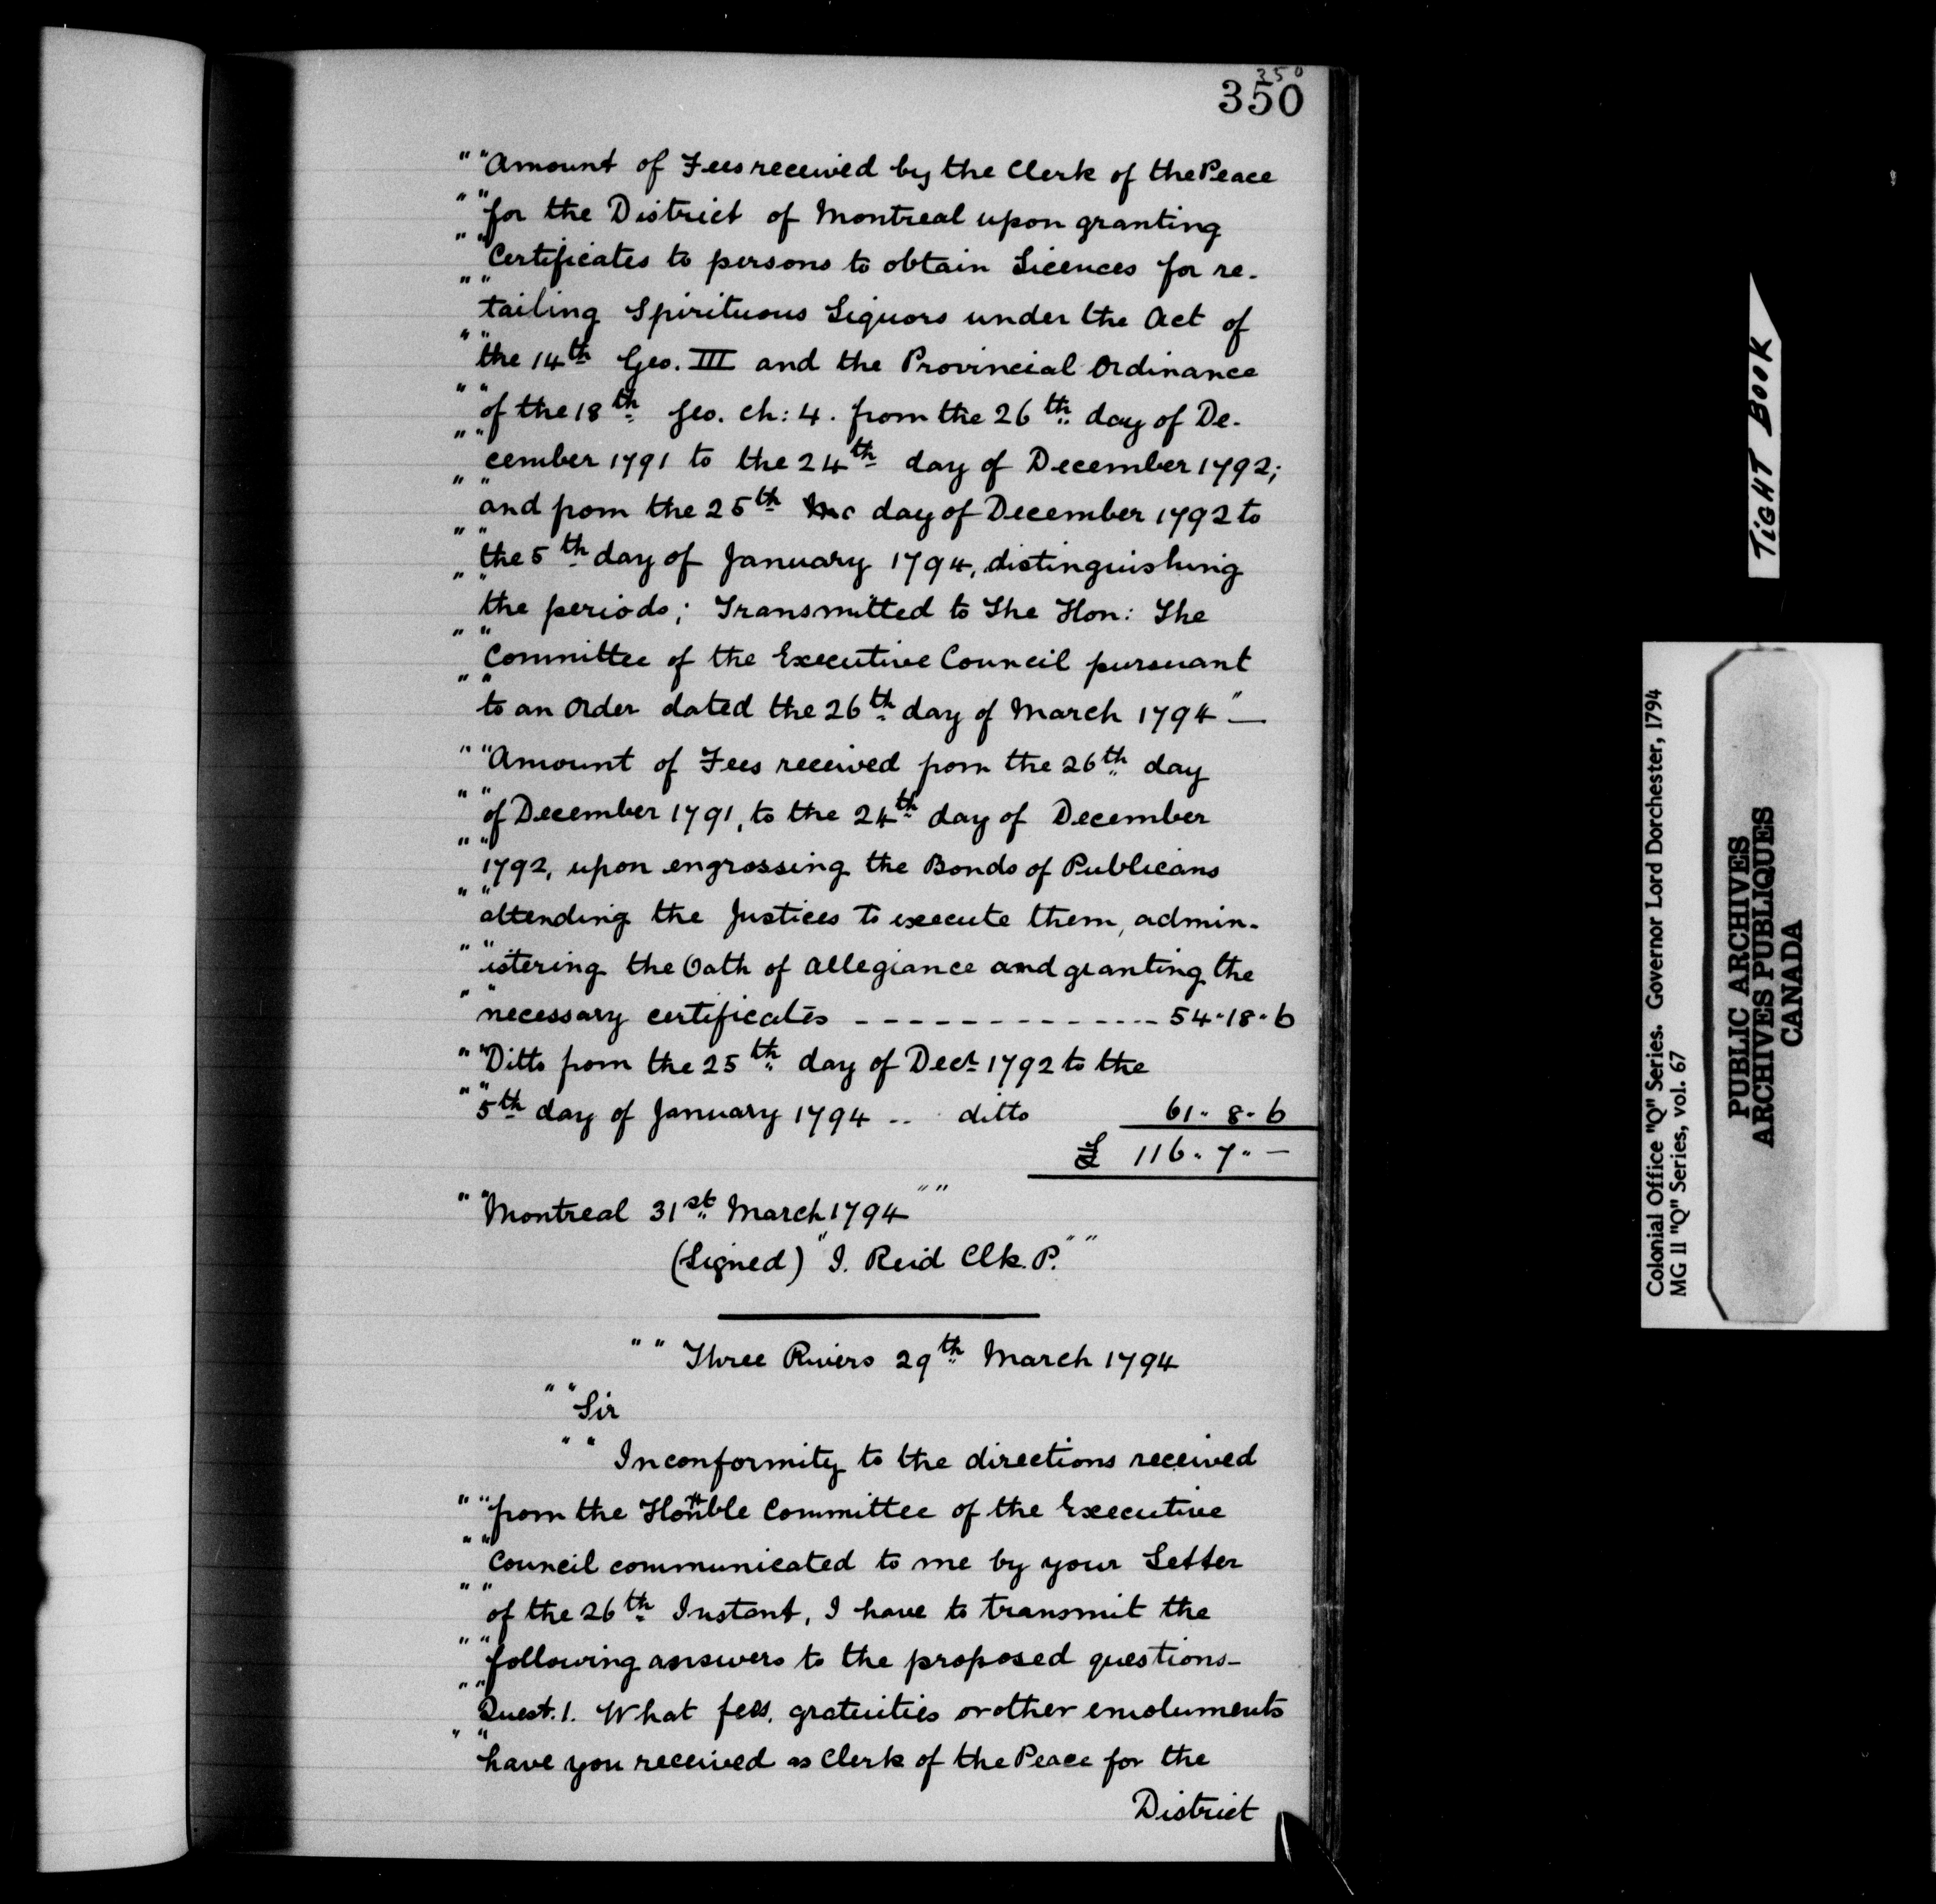 350
350
" "Amount of Fees received by the Clerk of the Peace
" "for the District of Montreal upon granting
" "Certificates to persons to obtain Licences for re-
" "tailing Spirituous Liquors under the Act of
" "the 14th Geo. III and the Provincial Ordinance
" "of the 18th Geo. ch: 4. from the 26th day of De-
" "cember 1791 to the 24th day of December 1792;
" "and from the 25th day of December 1792 to
" "the 5th day of January 1794, distinguishing
" "the periods; Transmitted to The Hon: The
" "Committee of the Executive Council pursuant
" "to an Order dated the 26th day of March 1794" —
" "Amount of Fees received from the 26th day
" "of December 1791, to the 24th day of December
" "1792, upon engrossing the Bonds of Publicans
" "attending the Justices to execute them, admin-
" "istering the Oath of Allegiance and granting the
" "necessary certificates - - - - - - - - - - - - - 54.18.6
" "Ditto from the 25th day of Decr 1792 to the
" "5th day of January 1794 .. ditto 61. 8. 6
£ 116. 7. —
" "Montreal 31st March 1794" "
(Signed) "I. Reid Clk. P." "
" " Three Rivers 29th March 1794
" "Sir
" " In conformity to the directions received
" "from the Honble Committee of the Executive
" "Council communicated to me by your Letter
" "of the 26th Instant, I have to transmit the
" "following answers to the proposed questions-
" "Quest. 1. What fees, gratuities or other emoluments
" "have you received as Clerk of the Peace for the
District
TIGHT BOOK
Colonial Office "Q" Series. Governor Lord Dorchester, 1794
MG II "Q" Series, vol. 67
PUBLIC ARCHIVES
ARCHIVES PUBLIQUES
CANADA